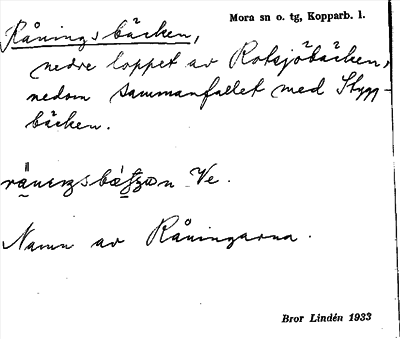 Mora sn o. tg, Kopparb. l.
Råningsbäcken,
nedre loppet av Rotsjöbäcken,
nedom sammanflödet med Stygg-
bäcken.
Ve.
Namn av Råningarna.
Bror Lindén 1933